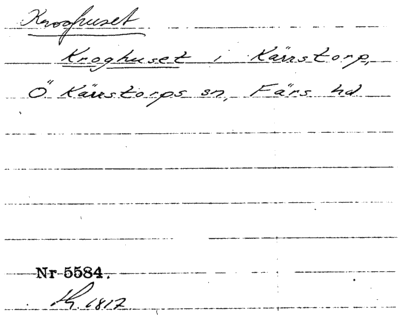 Kroghuset
Kroghuset i Kärrstorp,
Ö Kärrstorps sn, Färs hd
Nr 5584.
1817